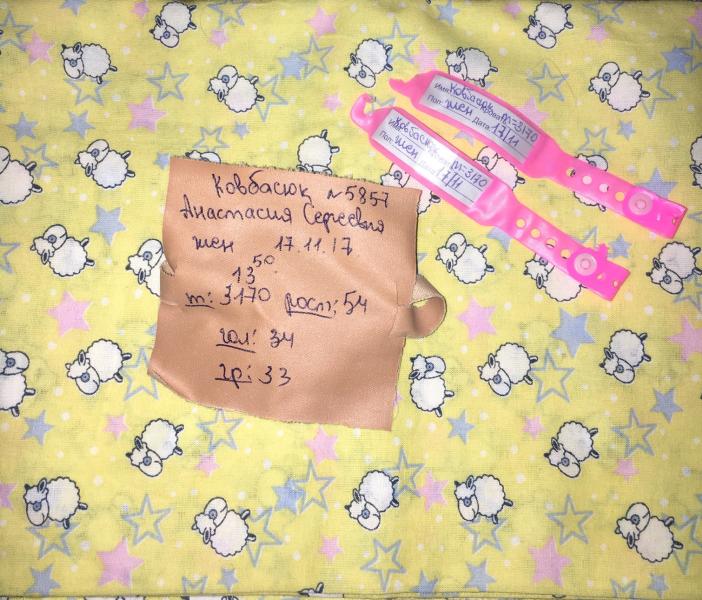 Ковбасюк n 5857
Анастасия Сергеевна
жен 17.11.17
13 50
m: 3170 рост: 54
гол: 34
гр: 33
Имя Ковбасюк m=3170
Пол: жен Дата 17/11
Имя Ковбасюк m=3170
Пол: жен Дата 17/11